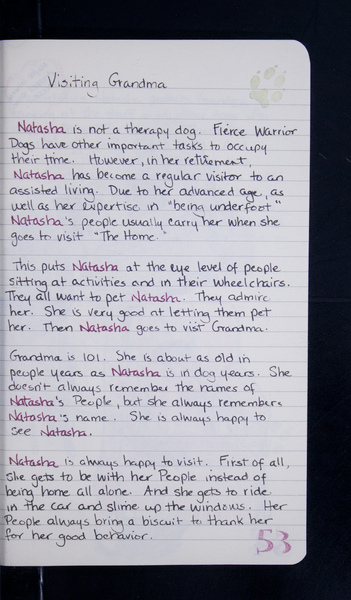 Visiting Grandma
Natasha is not a therapy dog. Fierce Warrior
Dogs have other important tasks to occupy
their time. However, in her retirement,
Natasha has become a regular visitor to an
assisted living. Due to her advanced age, as
well as her expertise in "being underfoot"
Natasha's people usually carry her when she
goes to visit "The Home."
This puts Natasha at the eye level of people
sitting at activities and in their wheelchairs.
They all want to pet Natasha. They admire
her. She is very good at letting them pet
her. Then Natasha goes to visit Grandma.
Grandma is 101. She is about as old in
people years as Natasha is in dog years. She
doesn't always remember the names of
Natasha's People, but she always remembers
Natasha's name. She is always happy to
see Natasha.
Natasha is always happy to visit. First of all,
she gets to be with her People instead of
being home all alone. And she gets to ride
in the car and slime up the windows. Her
People always bring a biscuit to thank her
for her good behavior.
53